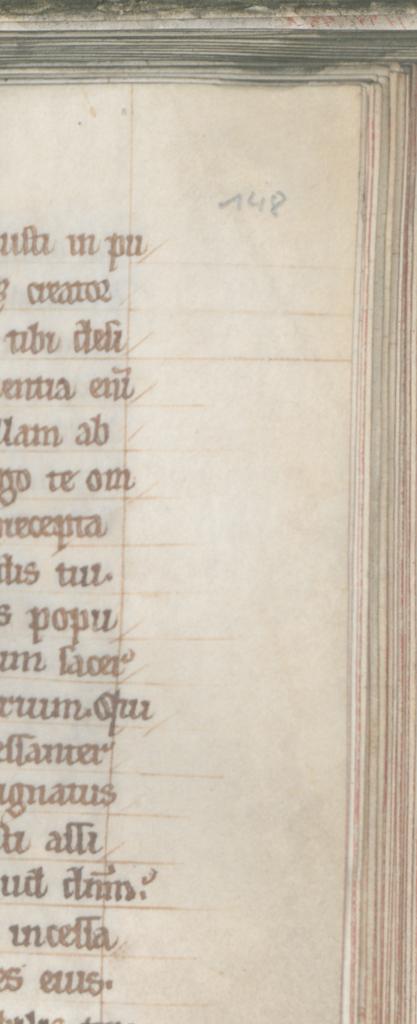 148
usti in pu
creator
tibi desi
entia eni̅
llam ab
go te om
precepta
dis tui.
s popu
um sacer
rium. Qui
essanter
ignatus
sti assi
ud dn̅m:
incessa
es eius.